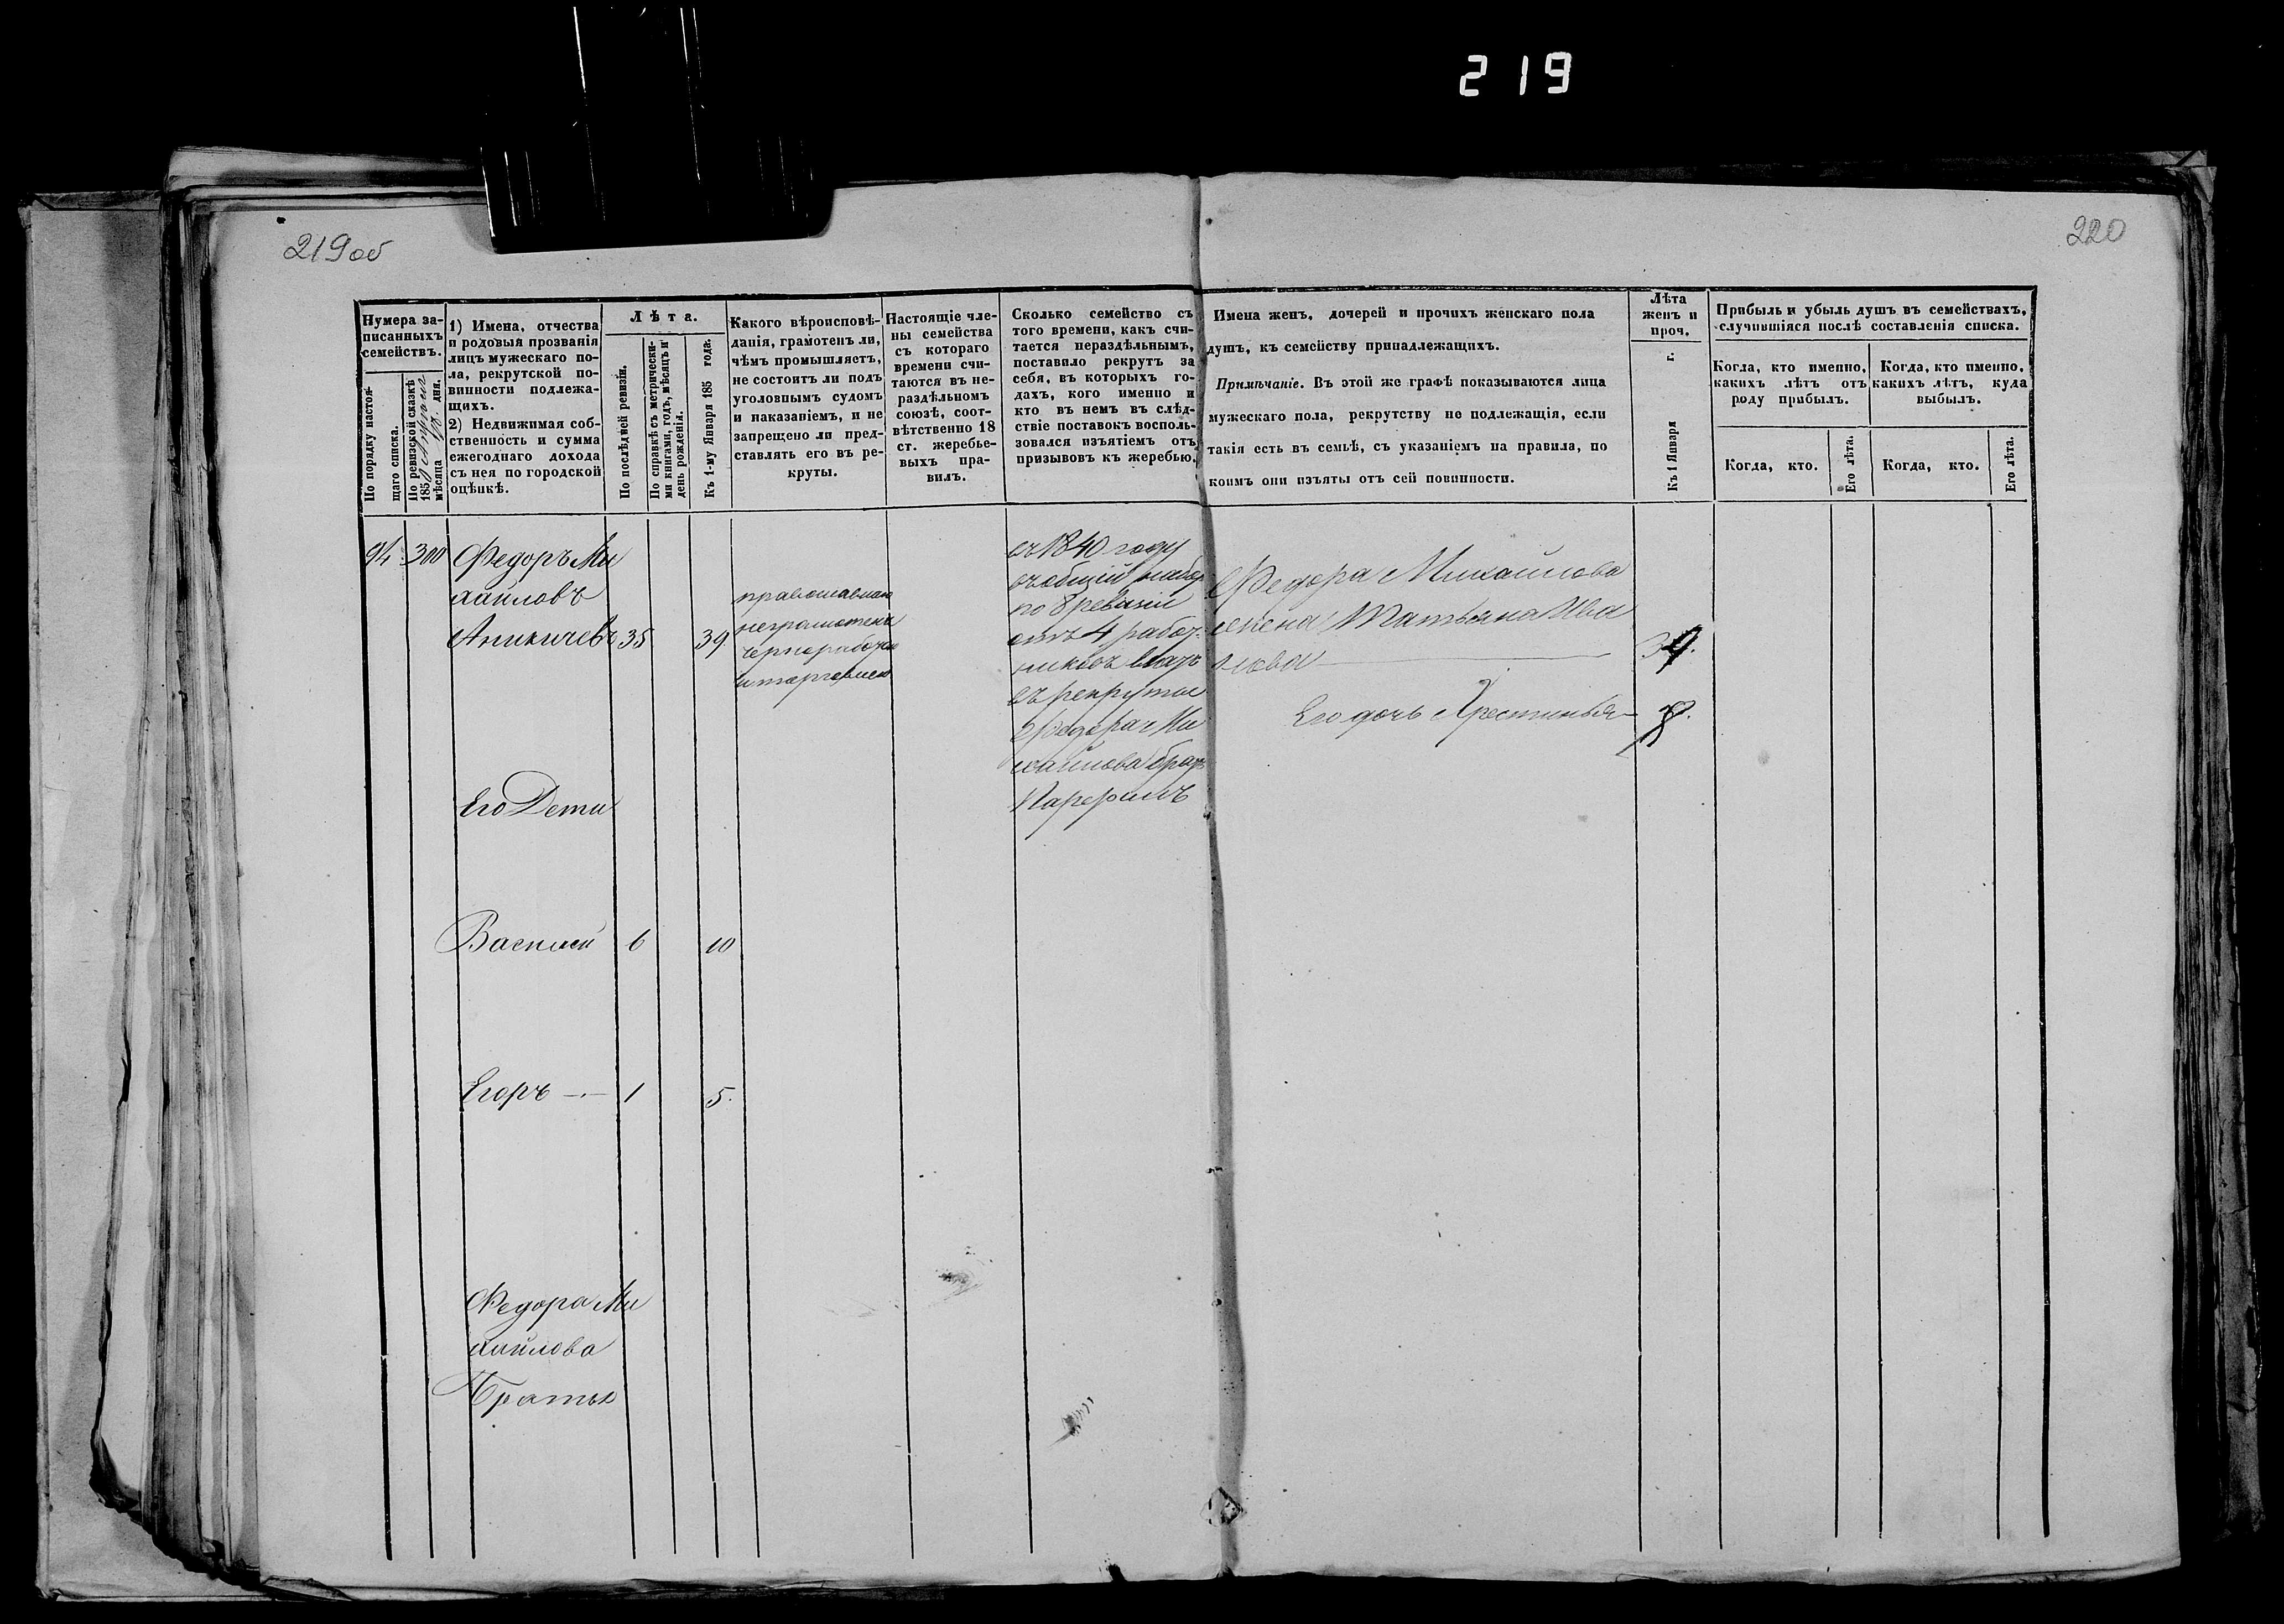 219
219об
220
Нумера за-
писанныхъ
семействъ.
По порядку настоя-
щаго списка.
По ревизской сказкѣ
185
мѣсяца дня.
1) Имена, отчества
и родовыя прозванія
лицъ мужескаго по-
ла, рекрутской по-
винности подлежа-
щихъ.
2) Недвижимая соб-
ственность и сумма
ежегоднаго дохода
съ нея по городской
оцѣнкѣ.
Лѣта.
По послѣдней ревизіи.
По справкѣ съ метрически-
ми книгами, годъ, мѣсяцъ и
день рожденія.
Къ 1-му Января 185 года.
Какого вѣроисповѣ-
данія, грамотенъ ли,
чѣмъ промышляетъ,
не состоитъ ли подъ
уголовнымъ судомъ
и наказаніемъ, и не
запрещено ли пред-
ставлять его въ ре-
круты.
Настоящіе чле-
ны семейства
съ котораго
времени счи-
таются въ не-
раздѣльномъ
союзѣ, соот-
вѣтственно 18
ст. жеребье-
выхъ пра-
вилъ.
Сколько семейство съ
того времени, какъ счи-
тается нераздѣльнымъ,
поставило рекрутъ за
себя, въ которыхъ го-
дахъ, кого именно и
кто въ немъ въ слѣд-
ствіе поставокъ восполь-
зовался изъятіемъ отъ
призывовъ къ жеребью.
Имена женъ, дочерей и прочихъ женскаго пола
душъ, къ семейству принадлежащихъ.
Примѣчаніе. Въ этой же графѣ показываются лица
мужескаго пола, рекрутству не подлежащія, если
такія есть въ семьѣ, съ указаніемъ на правила, по
коимъ они изъяты отъ сей повинности.
Лѣта
женъ и
проч.
Къ 1 Января г.
Прибыль и убыль душъ въ семействахъ,
случившіяся послѣ составленія списка.
Когда, кто именно,
какихъ лѣтъ отъ
роду прибылъ.
Когда, кто именно,
какихъ лѣтъ, куда
выбылъ.
Когда, кто.
Его лѣта.
Когда, кто.
Его лѣта.
94 300 Федоръ Ми
хайловъ
Аникичевъ 35 39
неграмотенъ
въ 1840 году
въ общій набор
по 8 ревизіи
отъ 4 работ-
никовъ взятъ
въ рекруты
Федора Ми
хайлова братъ
Парфилъ
Федора Михайлова
жена Татьяна Ива
нова
Его дочь Хрестинья
Его Дети
Василей 6 10
Егоръ 1 5.
Федора Ми
хайлова
Братья